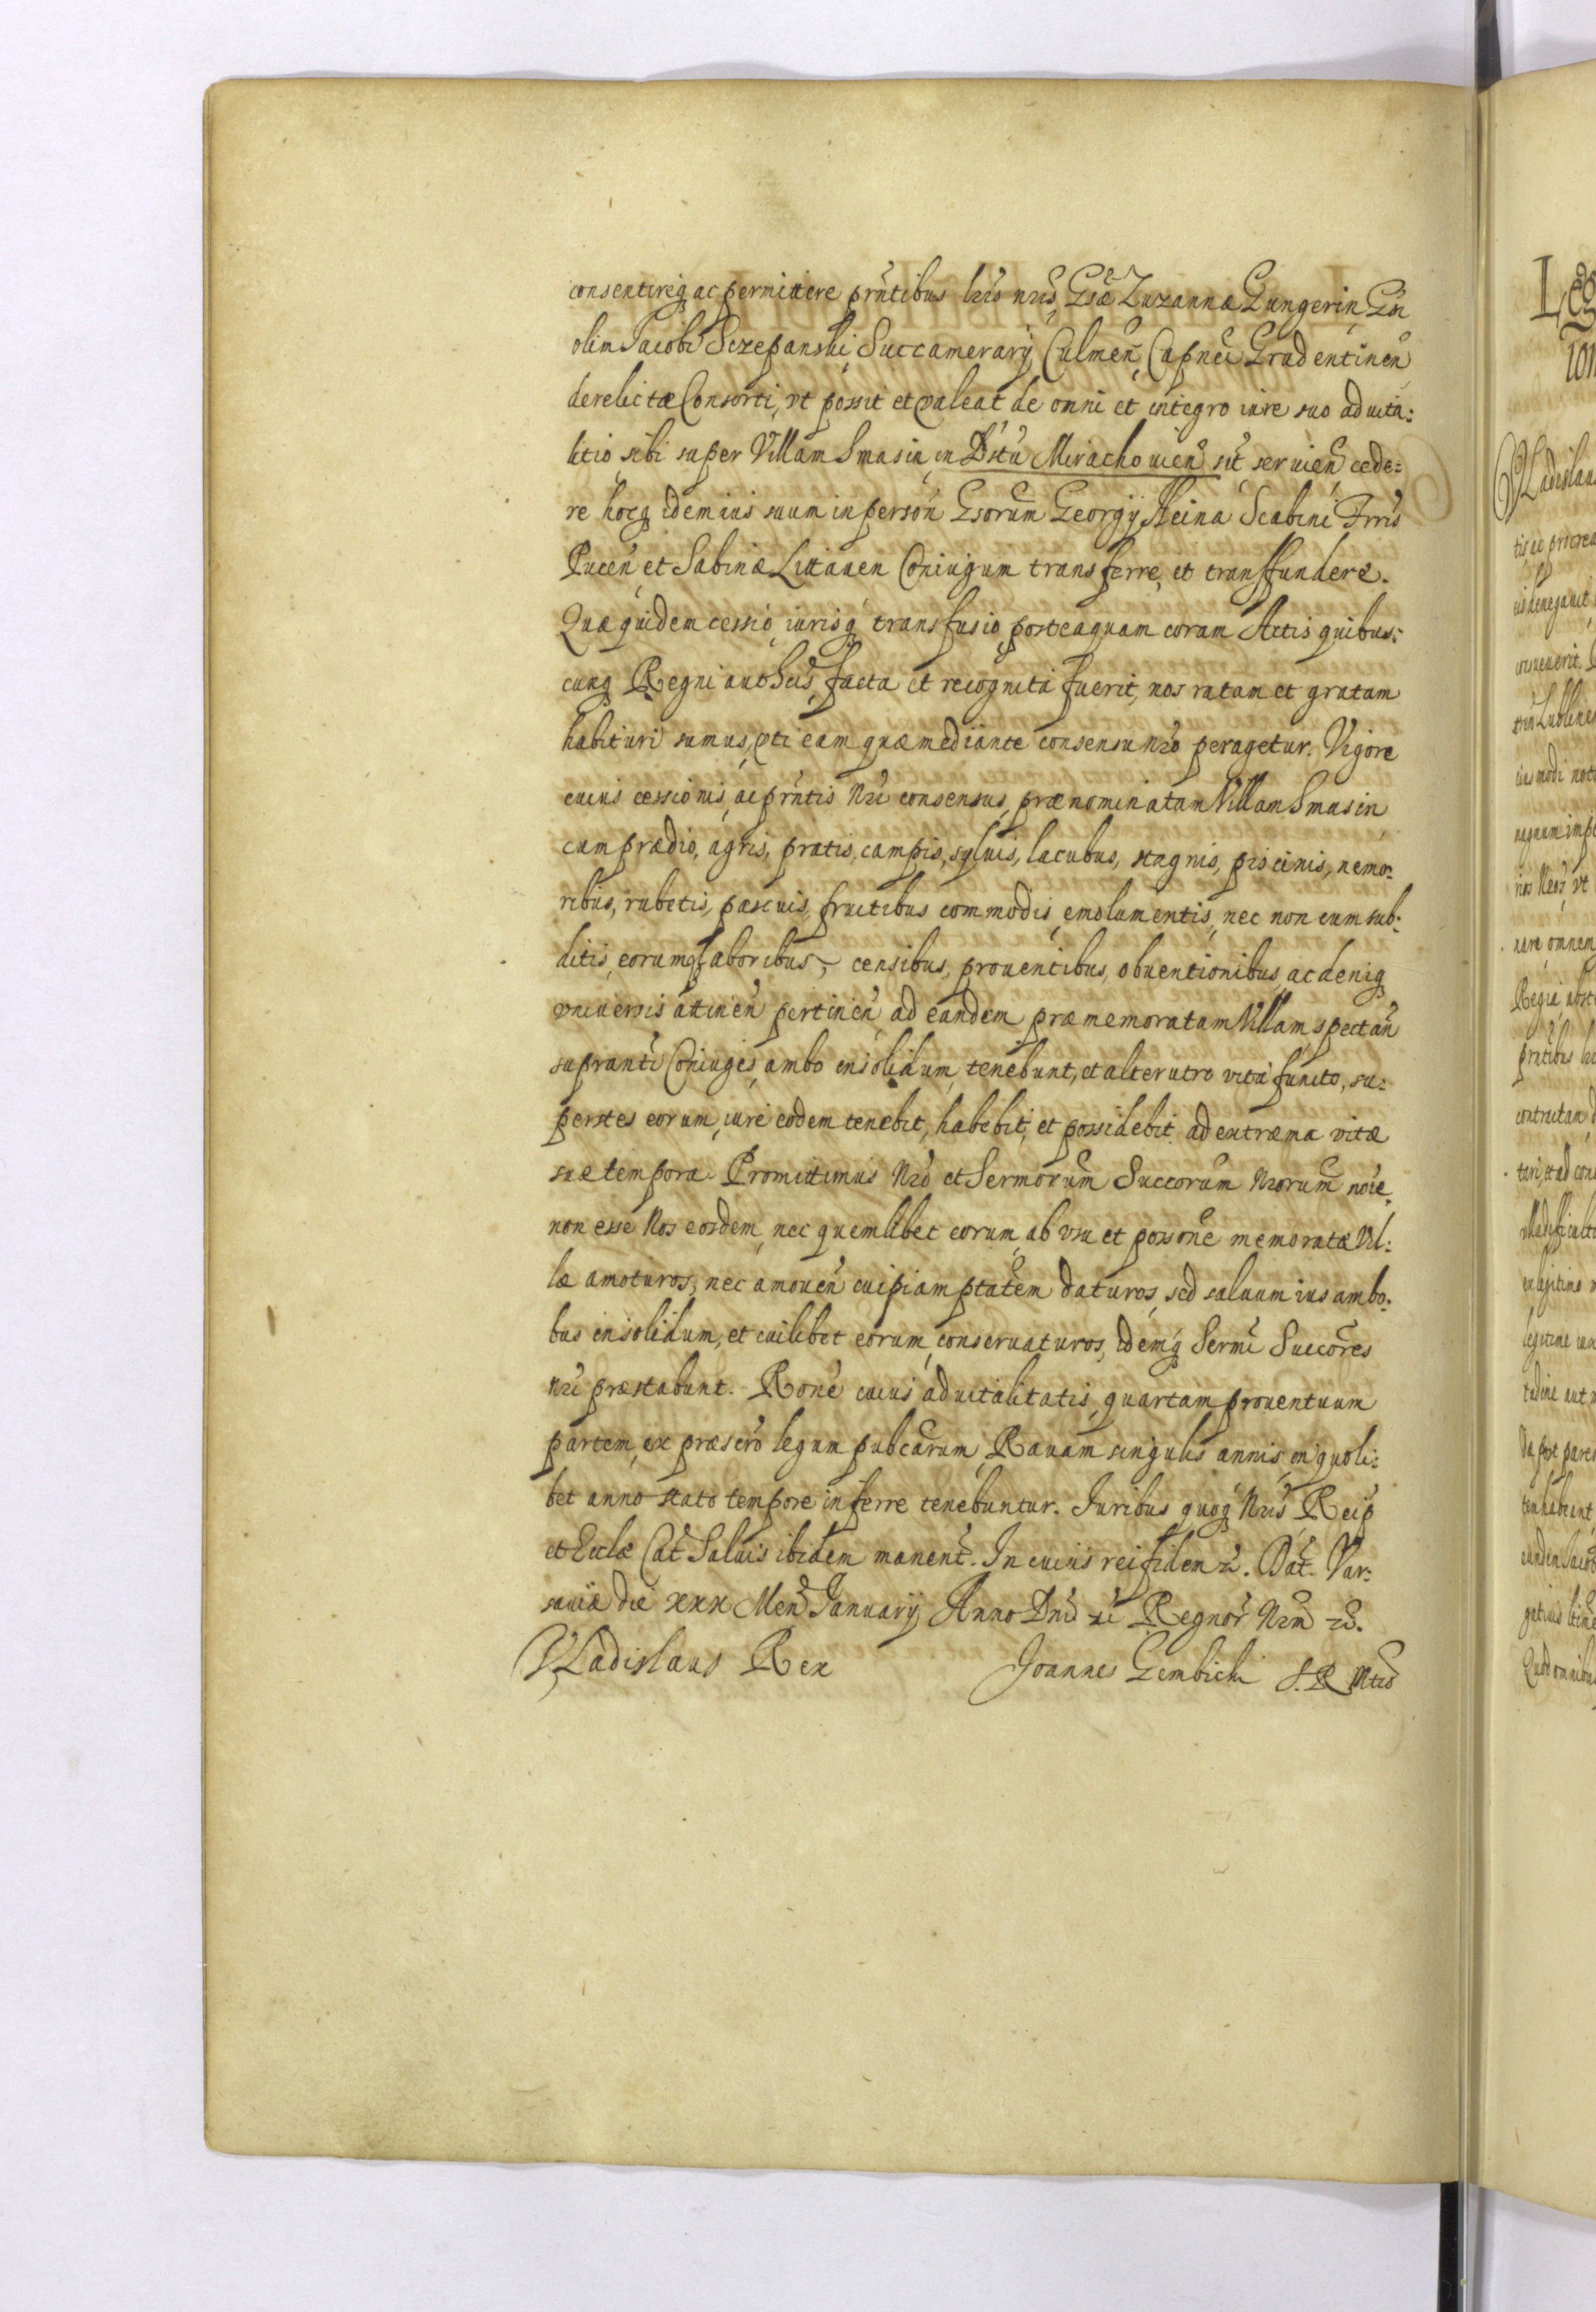 consentireq; ac permittere prñtibus lris nris, Gsæ Zuzannæ Gungerin, Gsi
olim Jacobi Sczepanski, Succamerarÿ Culmeñ, Capnei Grudentineñ
derelictæ Consorti, vt possit et valeat de omni et integro iure suo aduita:
litio, sibi super Villam Smasin, in Distũ Mirachouieñ sit. seruieñ cede:
re hocq; idem ius suum in persoñ Gsorum Georgÿ Heina Scabini Trris
Puceñ, et Sabinæ Littauen Coniugum transferre, et transffundere.
Quæquidem cessio, iurisq; transfusio, posteaquam coram Actis quibus:
cunq; Regni authcis, facta et recognita fuerit, nos ratam et gratam
habituri sumus, vti eam quæ mediante consensu nro peragetur. Vigore
cuius cessionis, ac prñtis Nri consensus, prænominatam Villam Smasin
cum prædio, agris, pratis, campis, syluis, lacubus, stagnis, piscinis, nemo:
ribus, rubetis, pascuis, fructibus commodis, emolumentis, nec non cum sub:
ditis, eorumq; laboribus, censibus, prouentibus, obuentionibus, ac deniq;
vniuersis attineñ pertineñ ad eandem præmemoratam Villam, spectañ
supranti Coniuges, ambo insolidum, tenebunt, et alterutro vita functo, su:
perstes eorum, iure eodem tenebit, habebit, et possidebit ad extræma vitæ
suæ tempora. Promittimus Nro et Sermorum Succorum Nrorum noie,
non esse Nos eosdem, nec quemlibet eorum, ab vsu et possone memoratæ Vil:
læ amoturos, nec amoueñ cuipiam ptatem daturos, sed saluum ius ambo:
bus insolidum, et cuilibet eorum, conseruaturos, idemq; Sermi Succores
Nri præstabunt. Rone cuius aduitalitatis, quartam prouentuum
partem, ex præscro legum pubcarum, Rauam singulis annis, in quoli:
bet anno stato tempore inferre tenebuntur. Iuribus quoq; Nris Reip
et Ecclæ Cat. Saluis ibidem manent. In cuius rei fidem &. Dat. Var:
sauiæ die XXX Men Januarÿ, Anno Dni ut Regnor Nrm &.
Vladislaus Rex Joannes Gembicki S. R. Mtis